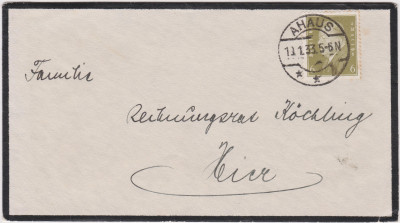 AHAUS
11.1.33.5-6N
6
Familie
Rechnungsrat Köchling
Hier